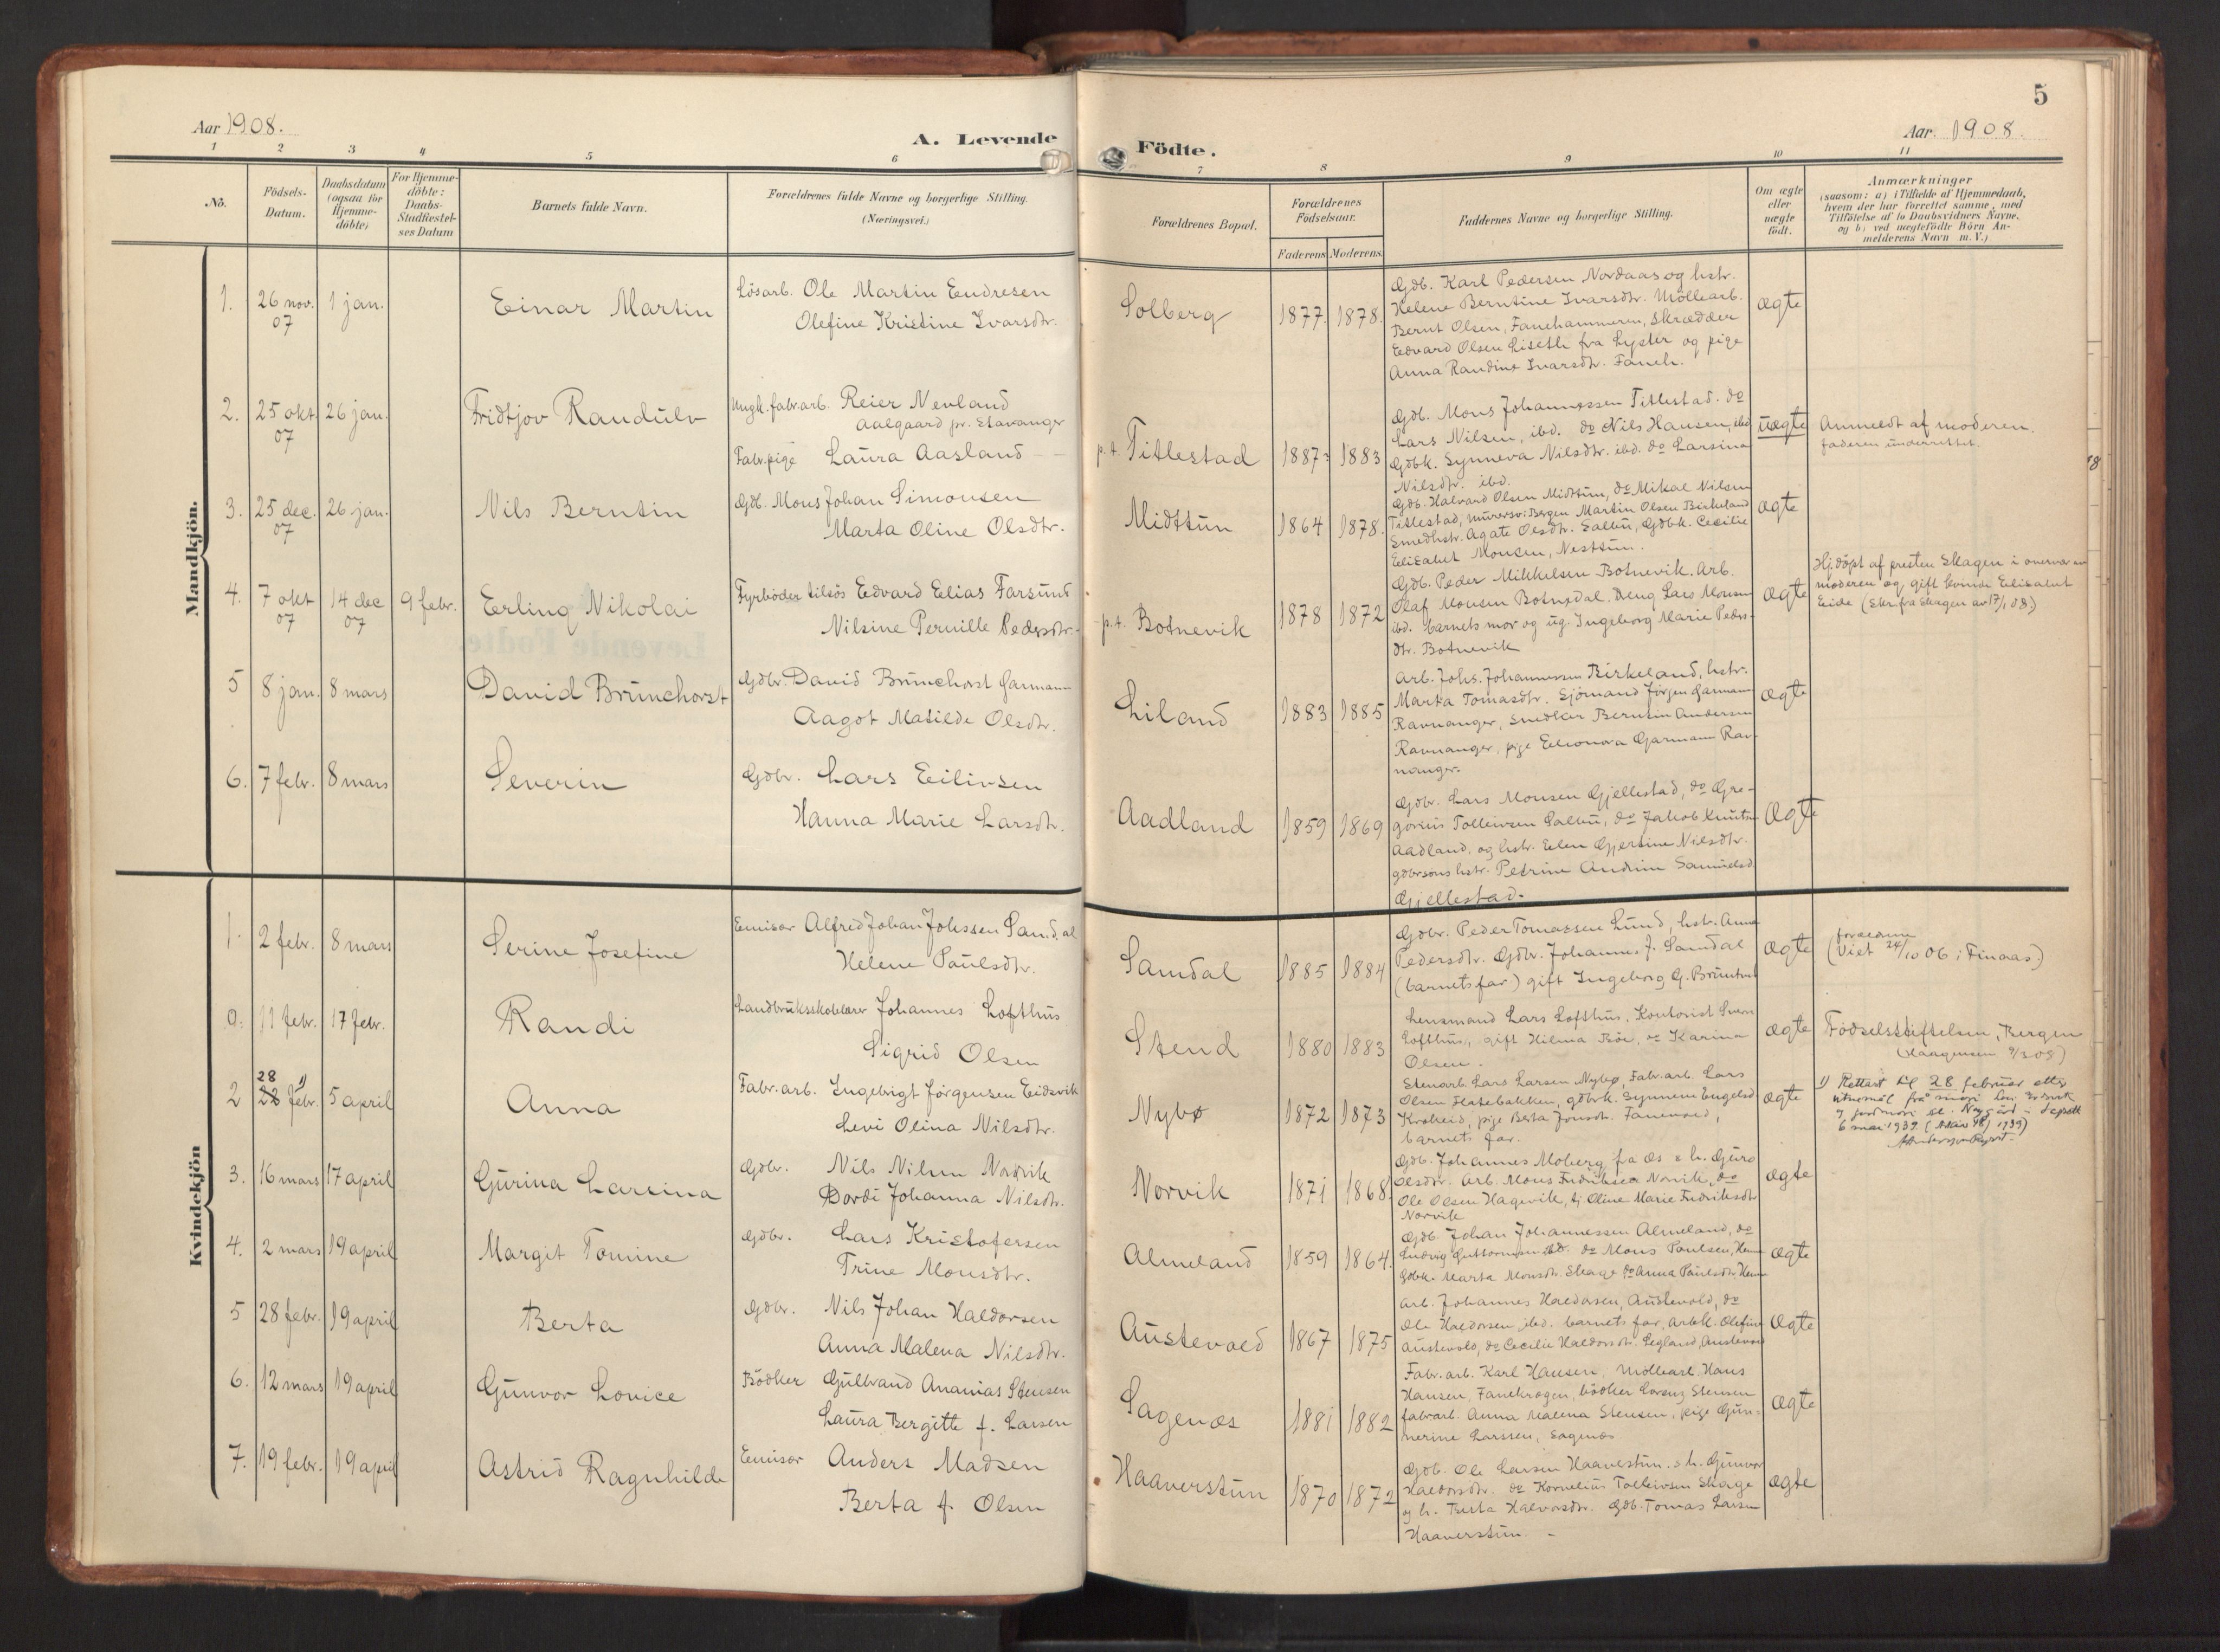 Aar 1908.
A. Levende
1 2 3 4 5 6
No.
Födsels-
Datum.
Daabsdatum
(ogsaa for
Hjemme-
döbte)
For Hjemme-
döbte:
Daabs-
Stadfæstel-
ses Datum
Barnets fulde Navn.
Forældrenes fulde Navne og borgerlige Stilling.
(Næringsvei.)
Mandkjön.
1. 26 nov. 07 1 jan. Einar Martin Lösarb. Ole Martin Endresen
Olefine Kristine Ivarsdtr.
2. 25 okt 07 26 jan. Fridtjov Randulv Ungk. fabr.arb. Reier Nevland
Aalgaard pr. Stavanger
Fabr.pige Laura Aasland
3. 25 dec. 07 26 jan. Nils Berntin Gdb. Mons Johan Simonsen
Marta Oline Olsdtr.
4. 7 okt 07 14 dec 07 9 febr. Erling Nikolai Fyrböder tilsös Edvard Elias Farsund
Nilsine Pernille Pedersdtr.
5 8 jan. 8 mars David Brunchorst Gdbr. David Brunchorst Garmann
Aagot Matilde Olsdtr.
6. 7 febr. 8 mars Severin Gdbr. Lars Eilivsen
Hanna Marie Larsdtr.
Kvindekjön
1. 2 febr. 8 mars Serine Josefine Emisær Alfred Johan Johssen Samdal
Helene Paulsdtr.
0. 11 febr. 17 febr. Randi Landbruksskolelærer Johannes Lofthus
Sigrid Olsen
28 1)
2 22 febr. 5 april Anna Fabr.arb. Ingebrigt Jörgensen Eidsvik
Levi Olina Nilsdtr.
3. 16 mars 17 april Gurina Larsina Gdbr. Nils Nilsen Norvik
Dordi Johanna Nilsdtr.
4. 2 mars 19 april Margit Tomine Gdbr. Lars Kristofersen
Trine Monsdtr.
5 28 febr. 19 april Berta Gdbr. Nils Johan Haldorsen
Anna Malena Nilsdtr.
6. 12 mars 19 april Gunvor Lovice Bödker Gulbrand Ananias Stensen
Laura Bergitte f. Larsen
7. 19 febr. 19 april Astrid Ragnhilde Emisær Anders Madsen
Berta f. Olsen
5
Födte.
Aar. 1908.
7 8 9 10 11
Forældrenes Bopæl.
Forældrenes
Födselsaar.
Faderens Moderens
Faddernes Navne og borgerlige Stilling.
Om ægte
eller
uægte
födt.
Anmærkninger
(saasom: a) i Tilfælde af Hjemmedaab,
hvem der har forrettet samme, med
Tilföielse af to Daabsvidners Navne.
og b) ved uægtefödte Börn An-
melderens Navn m. V.)
Solberg 1877. 1878. ægte
Gdb. Karl Pedersen Nordaas og hstr.
Helene Berntine Ivarsdtr. Möllearb.
Bernt Olsen, Fanehammeren, Skrædder
Edvard Olsen Liseth fra Lyster og pige
Anna Randine Ivarsdtr. Faneh.
p.t. Titlestad 1887 1883 uægte
Gdb. Mons Johannessen Titlestad. do
Lars Nilsen, ibd. do Nils Hansen, ibd
Gdbk. Synneva Nilsdtr. ibd. do Larsina
Nilsdtr. ibd.
Anmeldt af moderen.
faderen underrettet.
Midttun 1864 1878. ægte
Gdb. Halvard Olsen Midttun, do Mikal Nilsen
Titlestad, murersv. i Bergen Martin Olsen Birkeland
Smedhstr. Agate Olsdtr. Sælen, Gdbk. Cecilie
Elisabet Monsen, Nesttun.
p.t. Botnevik 1878 1872 ægte
Gdb. Peder Mikkelsen Botnevik. Arb.
Olaf Monsen Botnedal. Dreng Lars Monsen
ibd. barnets mor og ug. Ingeborg Marie Peders-
dtr. Botnevik
Hj.döpt af presten Skagen i overvær av
moderen og gift kvinde Elisabet
Eide (Skr. fra Skagen av 17/1 08)
Liland 1883 1885 ægte
Arb. Johs. Johannessen Birkeland, hstr.
Marta Tomasdtr. Sjömand Jörgen Garmann
Ravnanger, snedker Berntin Andersen
Ravnanger, pige Eleonora Garmann Rav-
nanger.
Aadland 1859 1869 Ægte
Gdbr. Lars Monsen Gjellestad, do Gre-
gorius Tolleivsen Sælen, do Jakob Knutsen
Aadland, og hstr. Elen Gjertine Nilsdtr.
gdbrsons hstr. Petrine Andrina Samuelsd.
Gjellestad.
Samdal 1885 1884 ægte
Gdbr. Peder Tomassen Lund, hstr. Anna
Pedersdtr. Gdbr. Johannes J. Samdal
(barnets far) gift Ingeborg G. Bruntvet
forældrene
(Viet 24/10 06 i Finaas.)
Stend 1880 1883 ægte
Lensmand Lars Lofthus, Kontorist Sven
Lofthus, gift Hilma Böe, do Karina
Olsen.
Födselsstiftelsen, Bergen
(Haagensen 9/3 08)
Nybø 1872 1873 ægte
Stenarb. Lars Larsen Nybø, Fabr.arb. Lars
Olsen Flatebakken, gdbrk. Synneve Engelsd.
Krokeid, pige Berta Jonsdtr. Fanevold,
barnets far.
1) Rettart til 28 februar etter
6 mai 1939.
Norvik 1871 1868. ægte
Gdb. Johannes Moberg fra Os & h. Guro
Olsdtr. Arb. Mons Fredriksen Norvik, do
Ole Olsen Hagevik, & Oline Marie Fredriksdtr
Norvik
Almeland 1859 1864. ægte
Gdb. Johan Johannessen Almeland, do
Ludvig Guttormsen ibd. do Mons Paulsen, Hem
Gdbk. Marta Monsdtr. Skage do Anna Paulsdtr. Hem
Austevold 1867 1875 ægte
Arb. Johannes Haldorsen, Austevold, do
Ole Haldorsen, ibd. barnets far, Arbk. Olefine
Austevold, do Cecilie Haldorsdtr. Legland, Austevold
Sagenæs 1881 1882 ægte
Fabr.arb. Karl Hansen, Möllearb. Hans
Hansen, Fanekrogen, bödker Lorenz Stensen
fabr.arb. Anna Malena Stensen, pige Gun-
nerine Larssen, Sagenæs
Haaverstun 1870 1872 ægte
Gdb. Ole Larsen Haaverstun. & h. Gunvor
Haldorsdtr. do Kornelius Tolleivsen Skage
og h. Berta Halvorsdtr. Gdb. Tomas Larsen
Haaverstun.